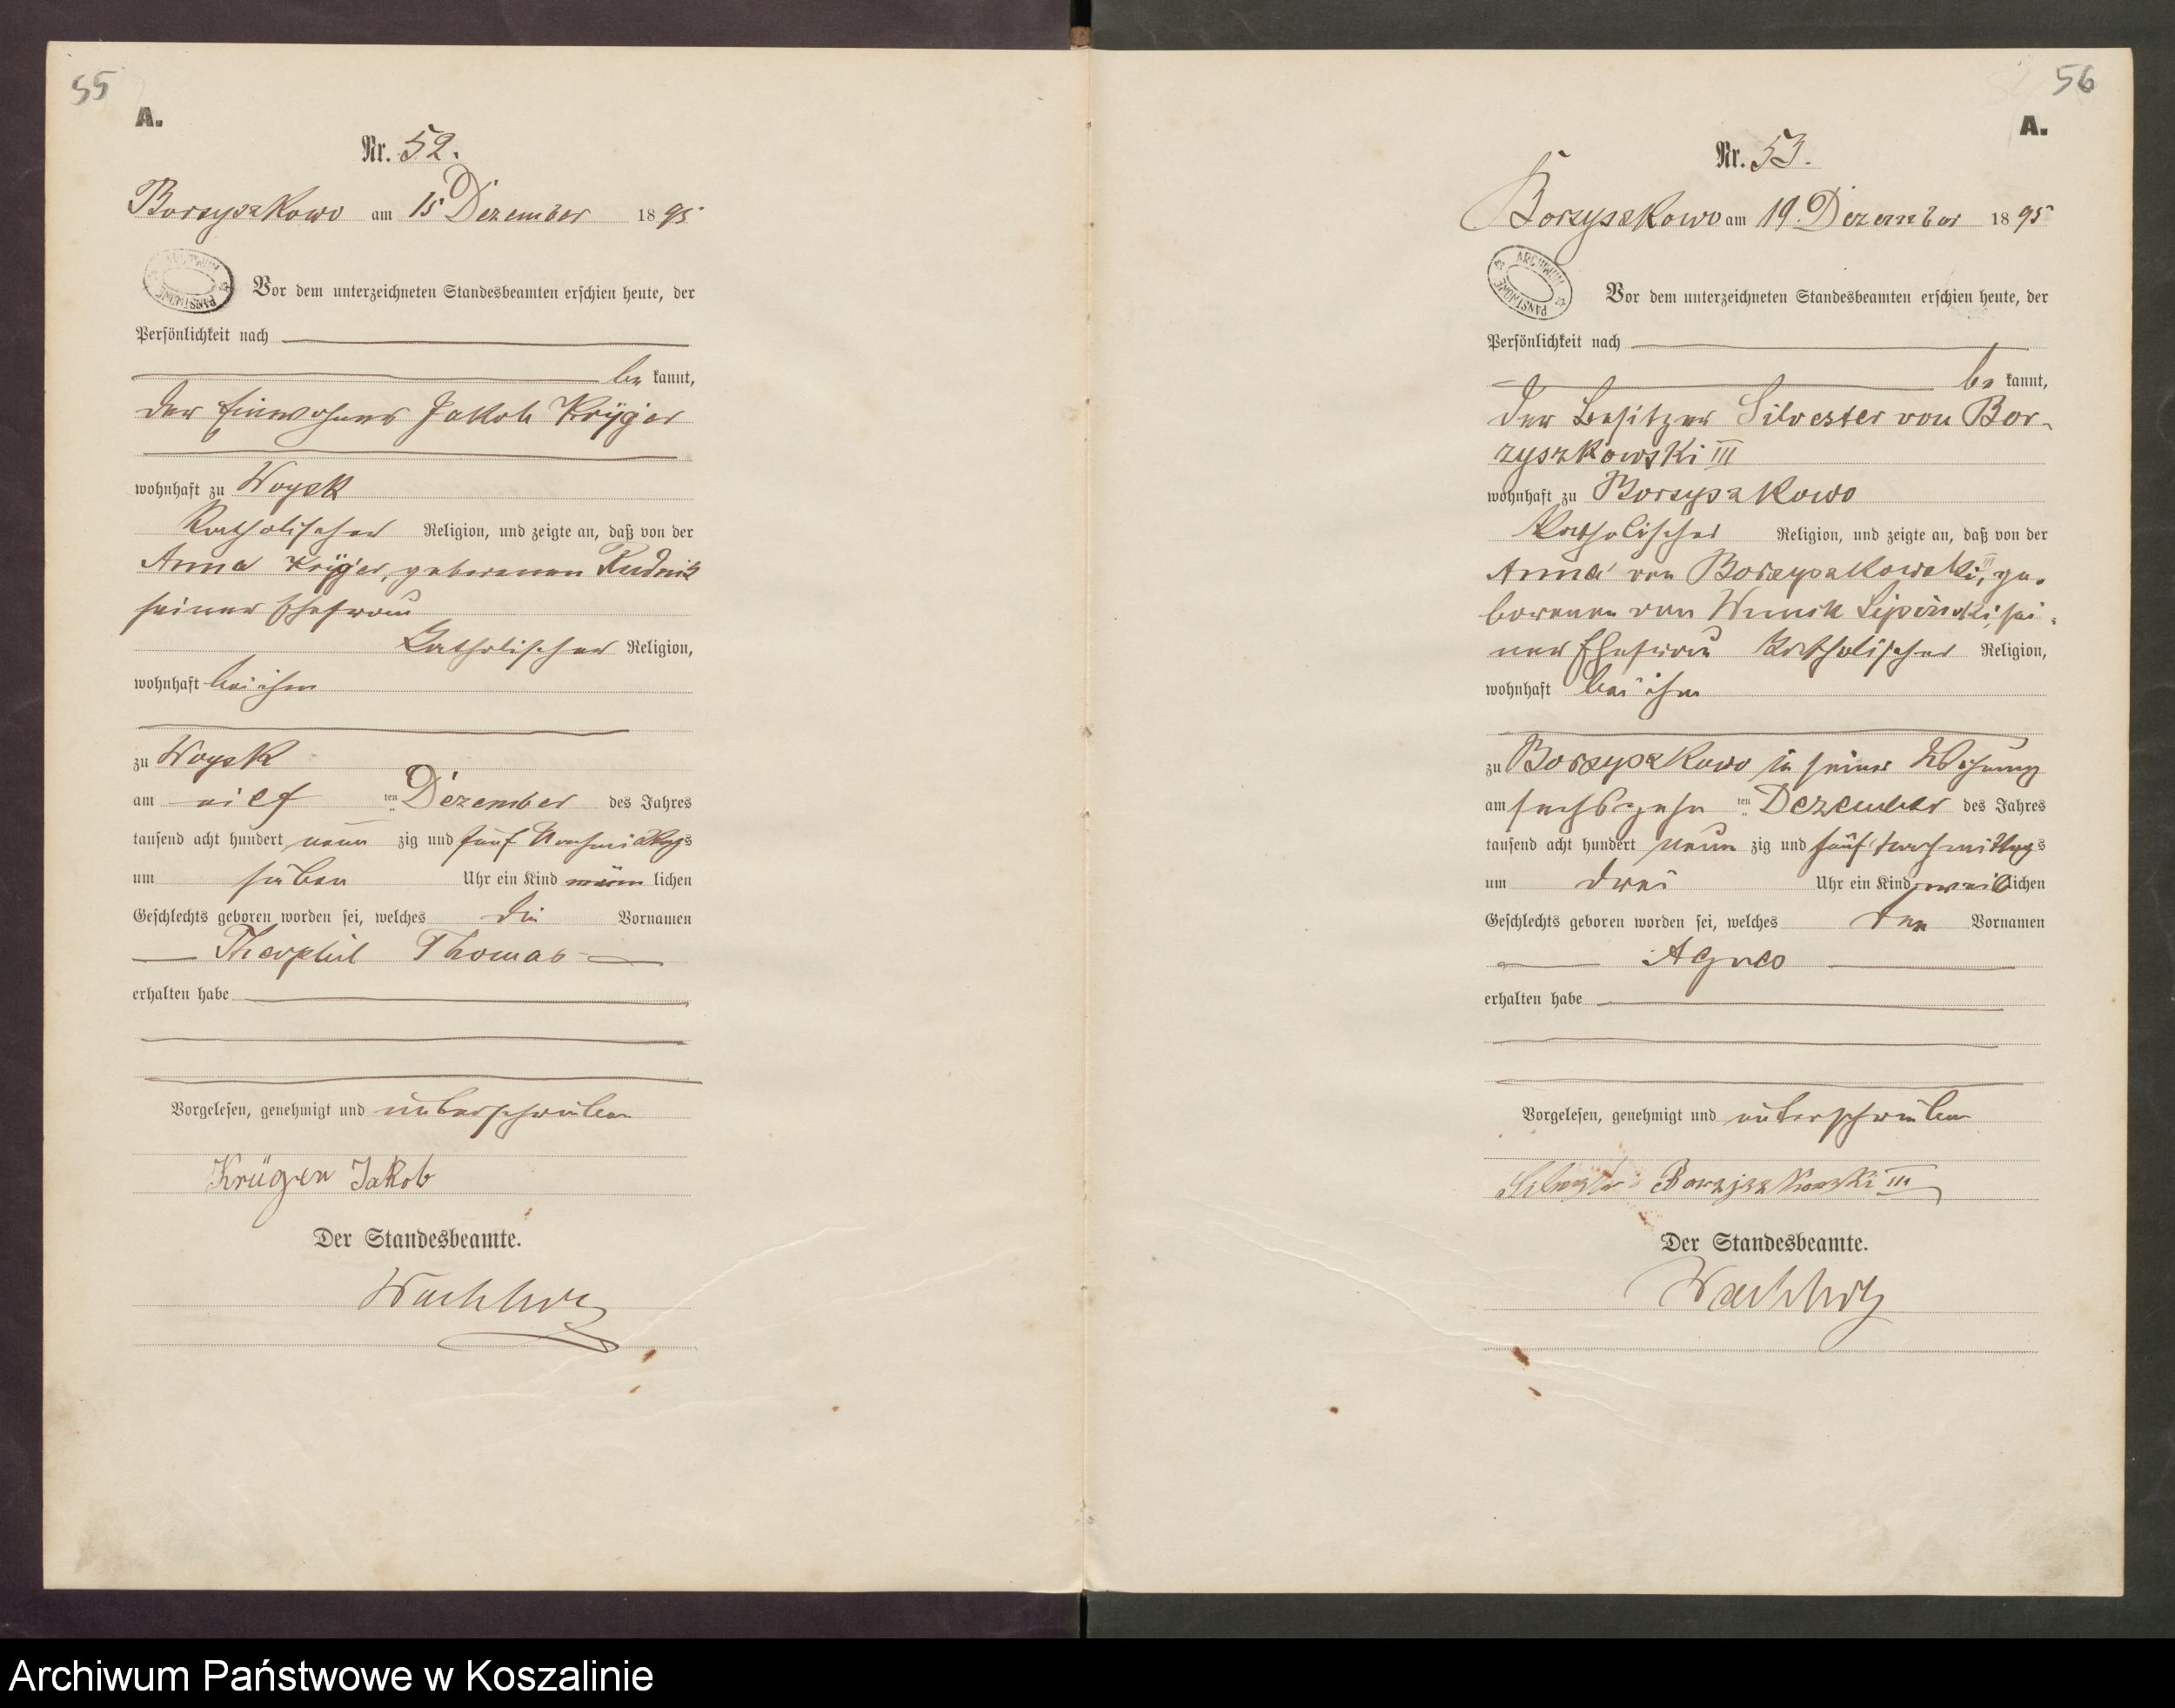 55
A.
Nr. 52.
Borzyszkowo am 15 Dezember 1895
ARCHIWUM PAŃSTWOWE
Vor dem unterzeichneten Standesbeamten erschien heute, der
Persönlichkeit nach
be kannt,
der Einwohner Jakob Krÿger
wohnhaft zu Woysk
Katholischer Religion, und zeigte an, daß von der
Anna Krÿger, geborenen Rudnik
seiner Ehefrau
Katholischer Religion,
wohnhaft bei ihm
zu Woysk
am eilf ten Dezember des Jahres
tausend acht hundert neun zig und fünf Nachmittags
um sieben Uhr ein Kind männ lichen
Geschlechts geboren worden sei, welches die Vornamen
Theophil Thomas
erhalten habe
Vorgelesen, genehmigt und unterschrieben
Krüger Jakob
Der Standesbeamte.
Wachholz
56
A.
Nr. 53.
Borzyszkowo am 19. Dezember 1895
ARCHIWUM PAŃSTWOWE
Vor dem unterzeichneten Standesbeamten erschien heute, der
Persönlichkeit nach
be kannt,
der Besitzer Silvester von Bor-
zyszkowski III
wohnhaft zu Borzyszkowo
Katholischer Religion, und zeigte an, daß von der
Anna von Borzyszkowski III, ge-
borenen von Wnuck Lipinski, sei-
ner Ehefrau Katholischer Religion,
wohnhaft bei ihm
zu Borzyszkowo in seiner Wohnung
am sechszehn ten Dezember des Jahres
tausend acht hundert neun zig und fünf Nachmittags
um drei Uhr ein Kind weiblichen
Geschlechts geboren worden sei, welches den Vornamen
Agnes
erhalten habe
Vorgelesen, genehmigt und unterschrieben
Silvester Borzyszkowski III
Der Standesbeamte.
Wachholz
Archiwum Państwowe w Koszalinie